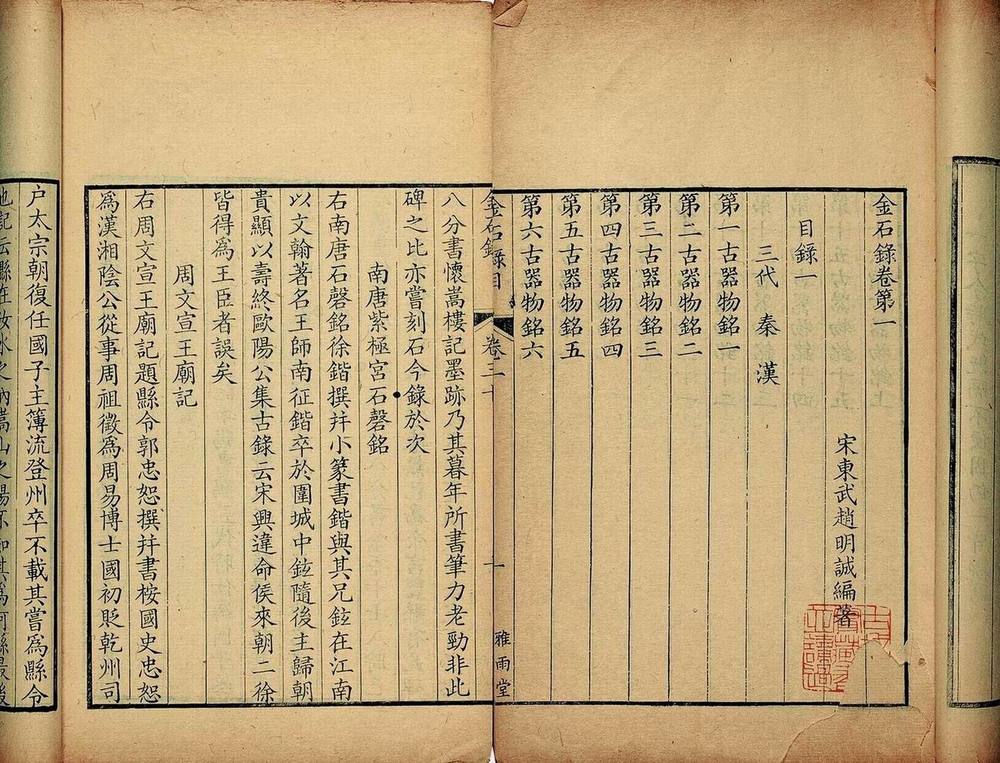 金石錄卷第一
宋東武趙明誠編著
目錄一
三代 秦 漢
第一古器物銘一
第二古器物銘二
第三古器物銘三
第四古器物銘四
第五古器物銘五
第六古器物銘六
金石錄目 卷三十 十 雅雨堂
八分書懷嵩樓記墨跡乃其暮年所書筆力老勁非此
碑之比亦嘗刻石今錄於次
南唐紫極宮石磬銘
右南唐石磬銘徐鍇撰幷小篆書鍇與其兄鉉在江南
以文翰著名王師南征鍇卒於圍城中鉉隨後主歸朝
貴顯以壽終歐陽公集古錄云宋興違命侯來朝二徐
皆得為王臣者誤矣
周文宣王廟記
右周文宣王廟記題縣令郭忠恕撰幷書桉國史忠恕
為漢湘陰公從事周祖徵為周易博士國初貶乾州司
户太宗朝復任國子主簿流登州卒不載其嘗為縣令
也記云縣在汝水之 嵩山之陽不知其為何縣最後